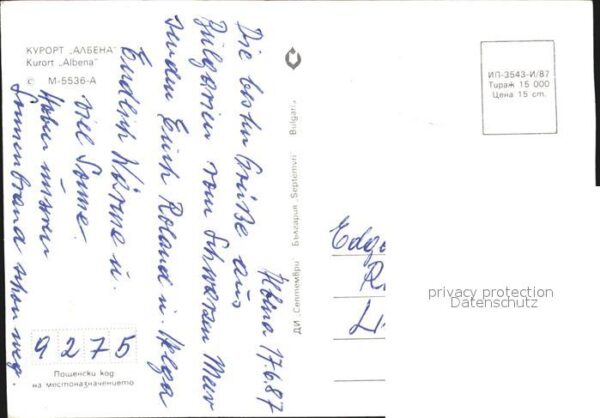 КУРОРТ „АЛБЕНА"
Kurort „Albena"
© М-5536-А
Albena 17.6.87
Die besten Grüße aus
Bulgarien vom Schwarzen Meer
senden Euch Roland u. Helga
Endlich Wärme u.
viel Sonne.
Haben unseren
Sonnenbrand schon weg.
9275
Пощенски код
на местоназначението
ДИ „Септември" България „Septemvri" Bulgaria
ИП-3543-И/87
Тираж 15 000
Цена 15 ст.
privacy protection
Datenschutz